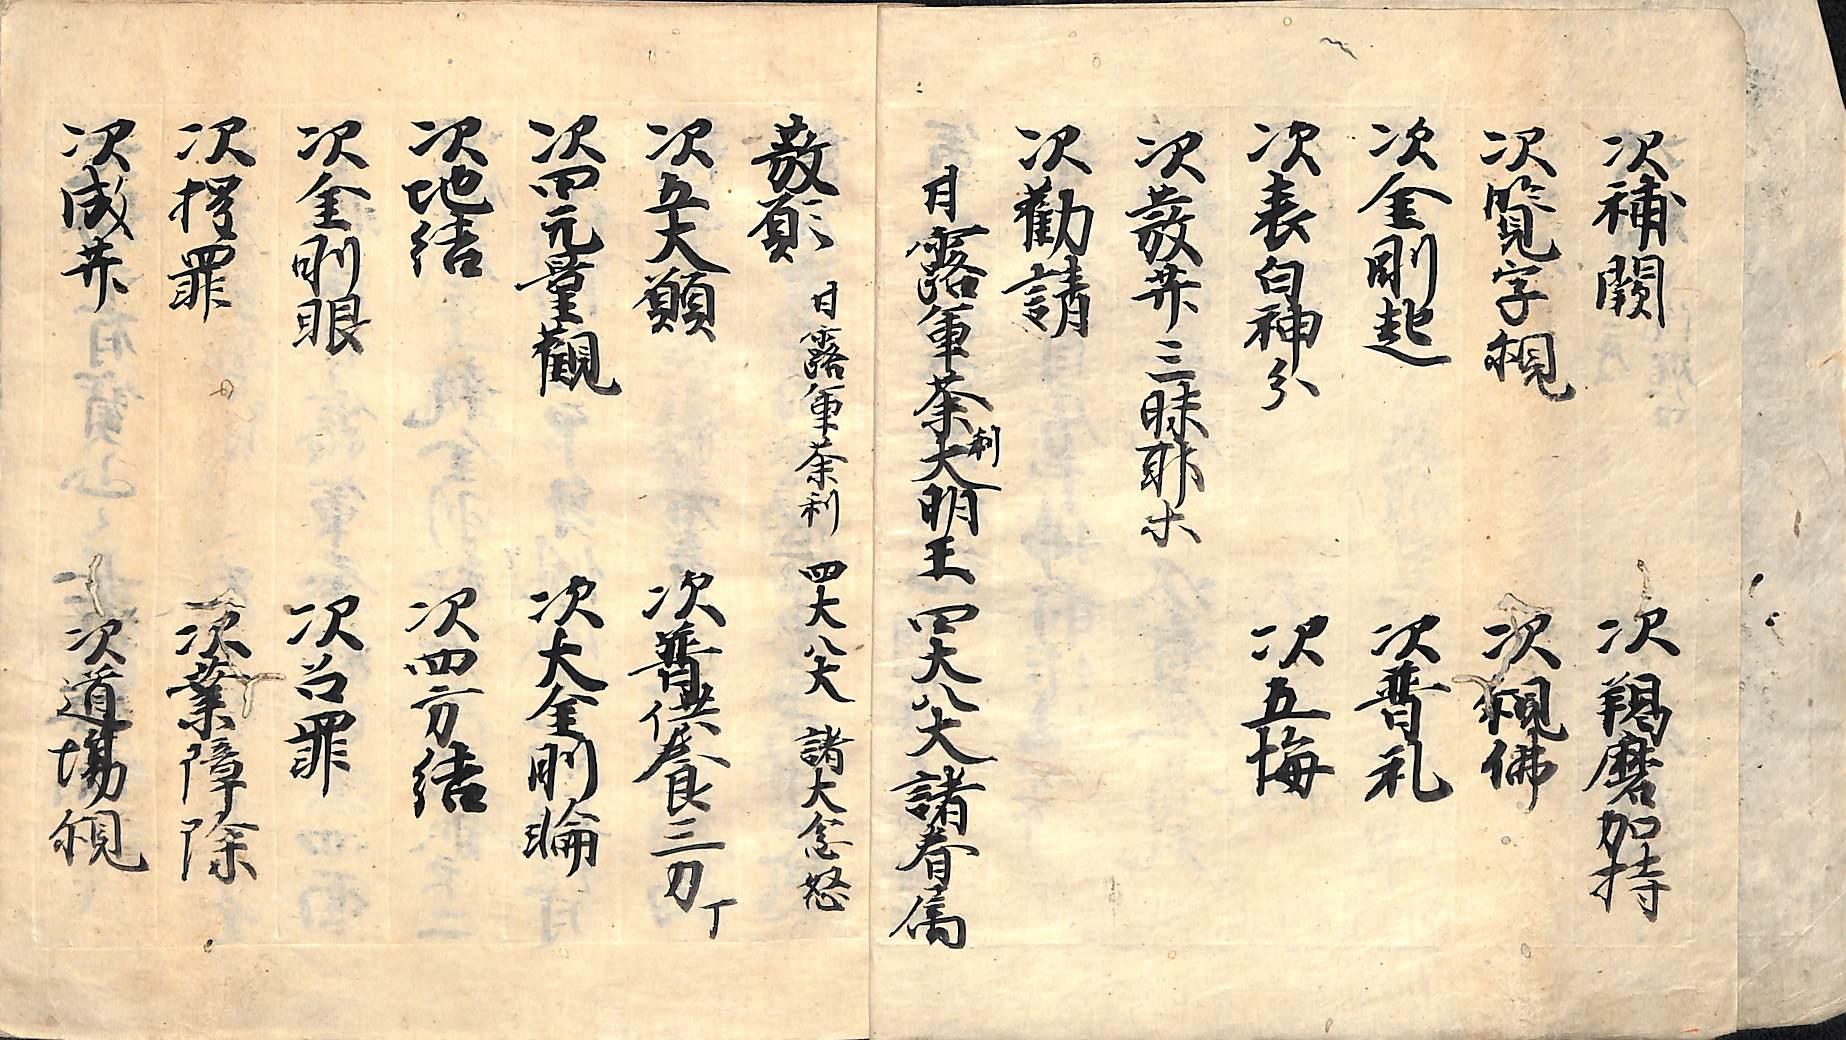 次補闕　次羯磨加持
次覧字観　次観佛
次金剛起　次普礼
次表白神分　次五悔
次發井三昧耶ホ
次勸請
甘露軍荼利大明王四大八大諸眷属
發願　甘露軍荼利　四大八大　諸大忿怒
次五大願　次普供養三力丁
次四元量觀　次大金剛輪
次地結　次四方結
次金剛眼　次召罪
次摧罪　次業障除
次成井　次道場観